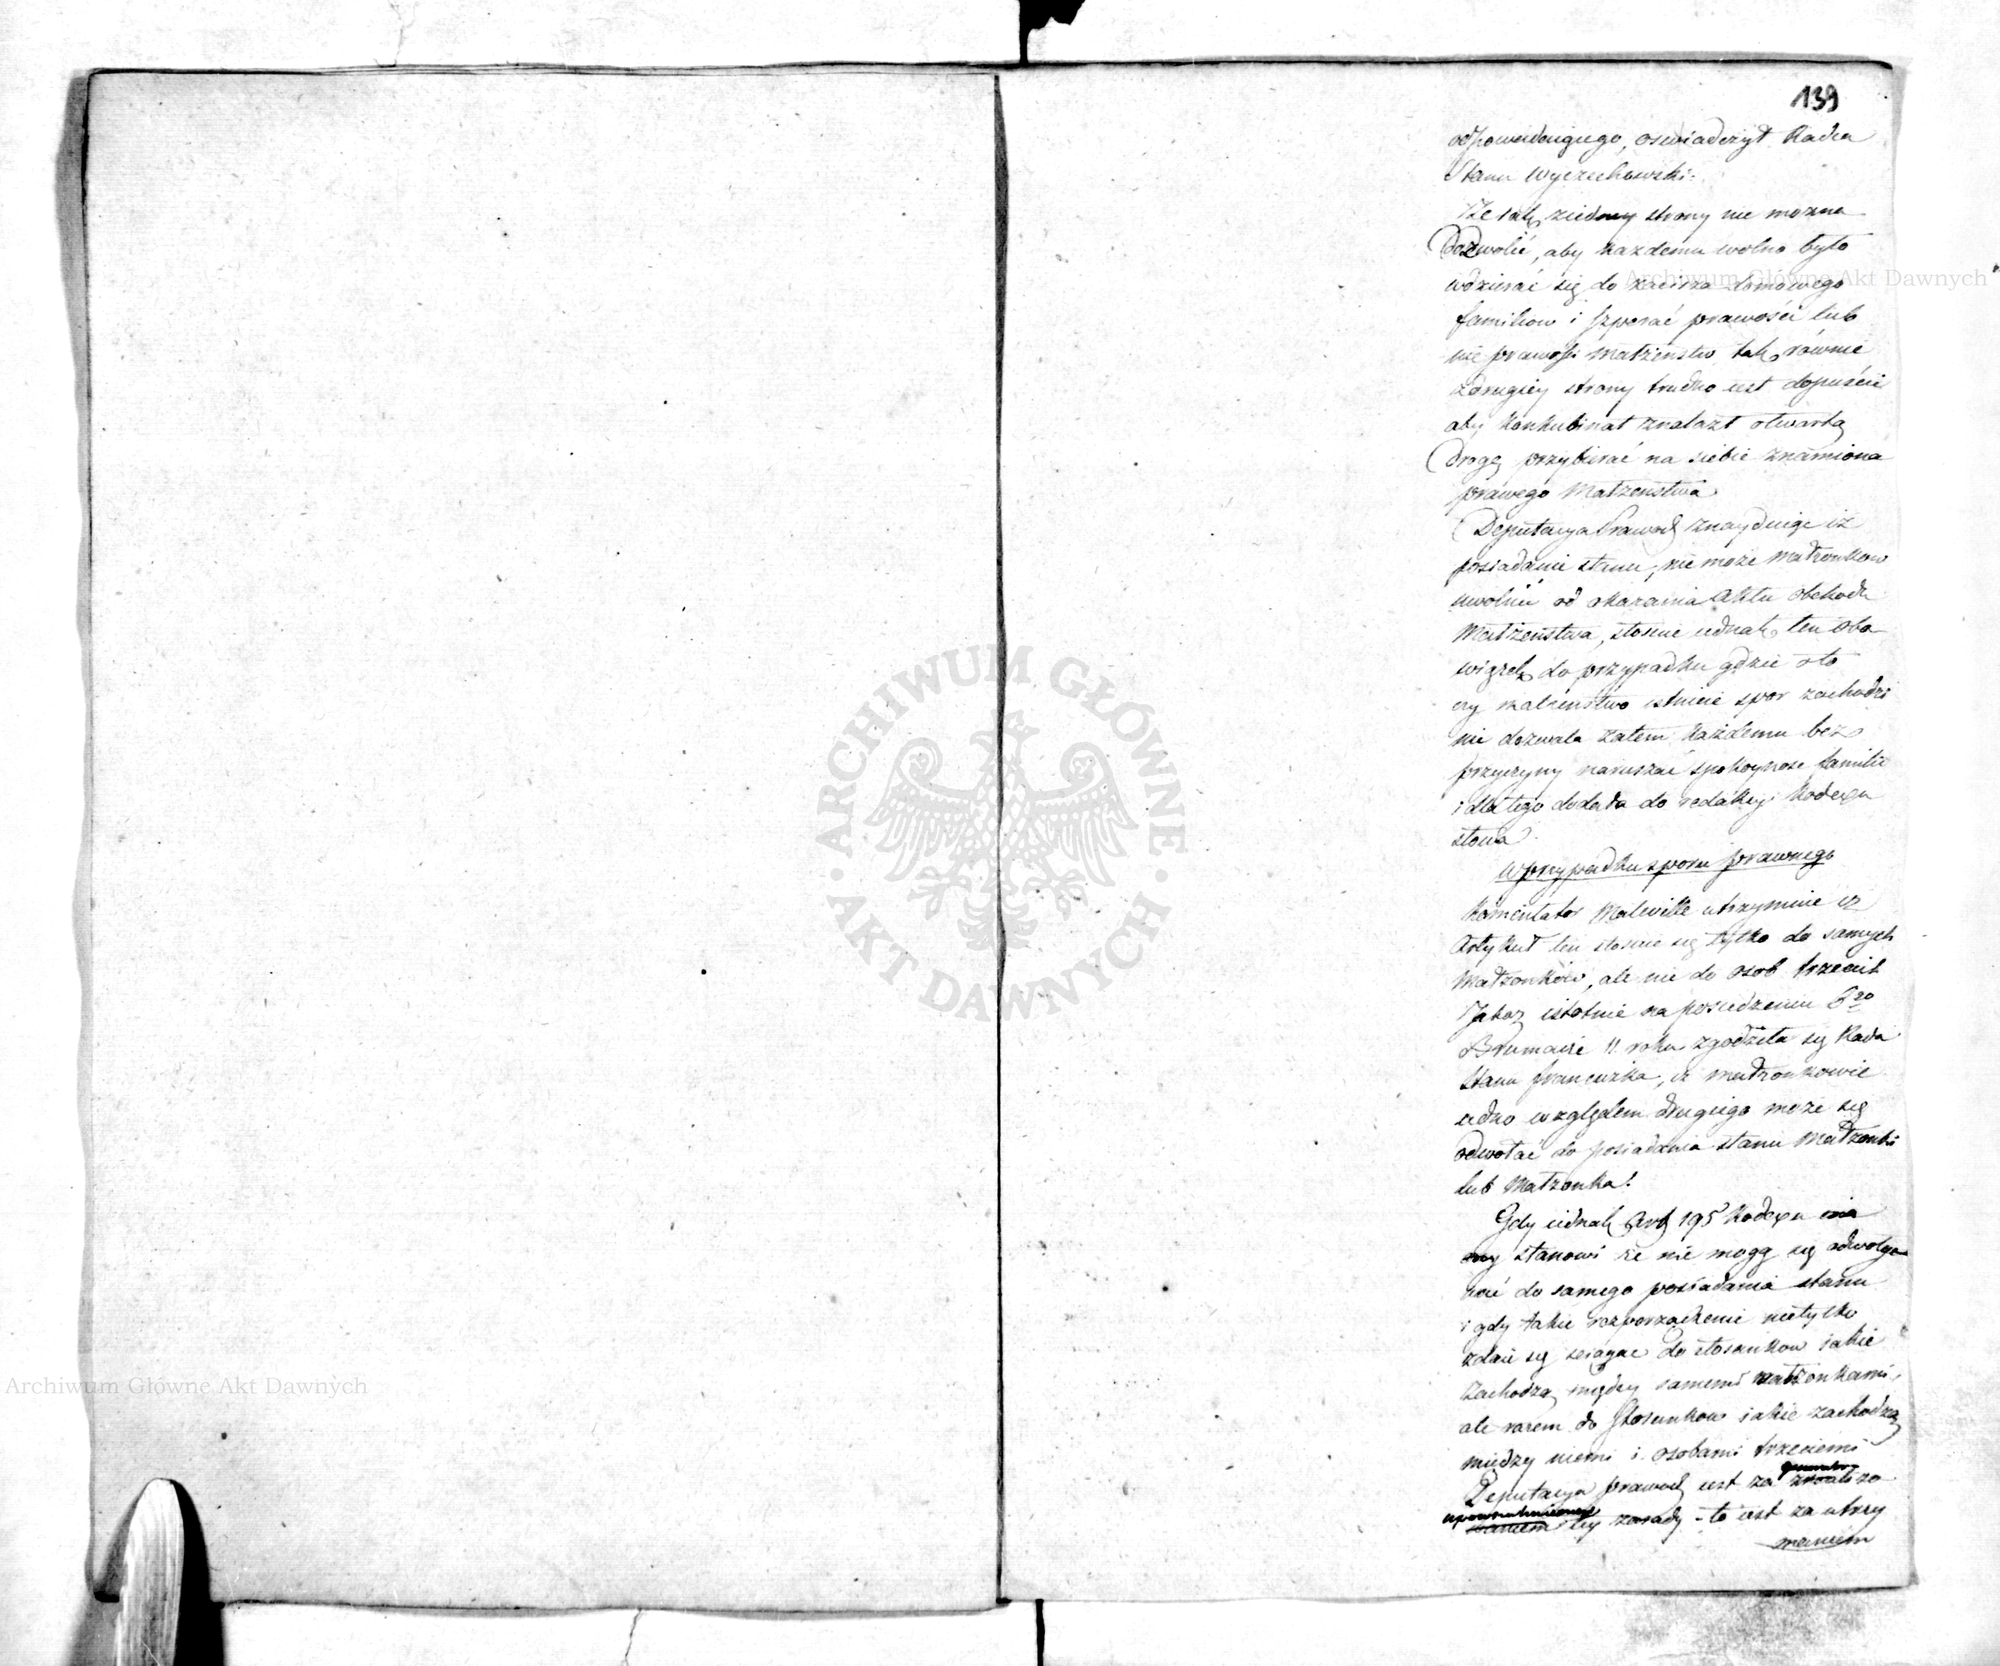 139
odpowiedniego, oswiadczył Radca
Stanu Wyczechowski:
Że iak ziedney strony nie mozna
dozwolić, aby kazdemu wolno było
wdzierać się do zacisza domowego
familiow i szperać prawości lub
nie prawości małżeństw tak równie
zdrugiey strony trudno iest dopuścić
aby konkubinat znalazł otwartą
drogę przybierać na siebie znamiona
prawego Małzenstwa
Deputacya Prawod. znayduige iż
posiadanie stanu, nie może małzonkow
uwolnić od okazania Aktu obchodu
Małżeństwa, stosuie iednak ten obo
wiązek do przypadku gdzie oto
czy małżeństwo istnieie spor zachodzi
nie dozwala zatem każdemu bez
przyczyny naruszać spokoynosc familii
i dla tego dodała do redakcyi Kodexu
słowa
w przypadku sporu prawnego
Komentator Maleville utrzymuie iż
Artykuł ten stosuie się tylko do samych
Małzonków, ale nie do osob trzecich
Jakoz istotnie na posiedzeniu 6go
Brumaire 11 roku zgodziła się Rada
Stanu francuzka, iz małzonkowie
iedno względem drugiego może się
odwołać do posiadania stanu Małzonki
lub Małzonka.
Gdy iednak Art 195 Kodexu
stanowi że nie mogą się odwoły
wać do samego posiadania stanu
i gdy takie rozporządzenie nietylko
zdaie się sciągac do stosunkow iakie
zachodzą między samemi małżonkami,
ale razem do stosunkow iakie zachodzą
między niemi i osobami trzeciemi
Deputacya prawod iest za
tey zasady - to iest za utrzy
maniem
Archiwum Główne Akt Dawnych
Archiwum Główne Akt Dawnych
ARCHIWUM GŁÓWNE · AKT DAWNYCH ·